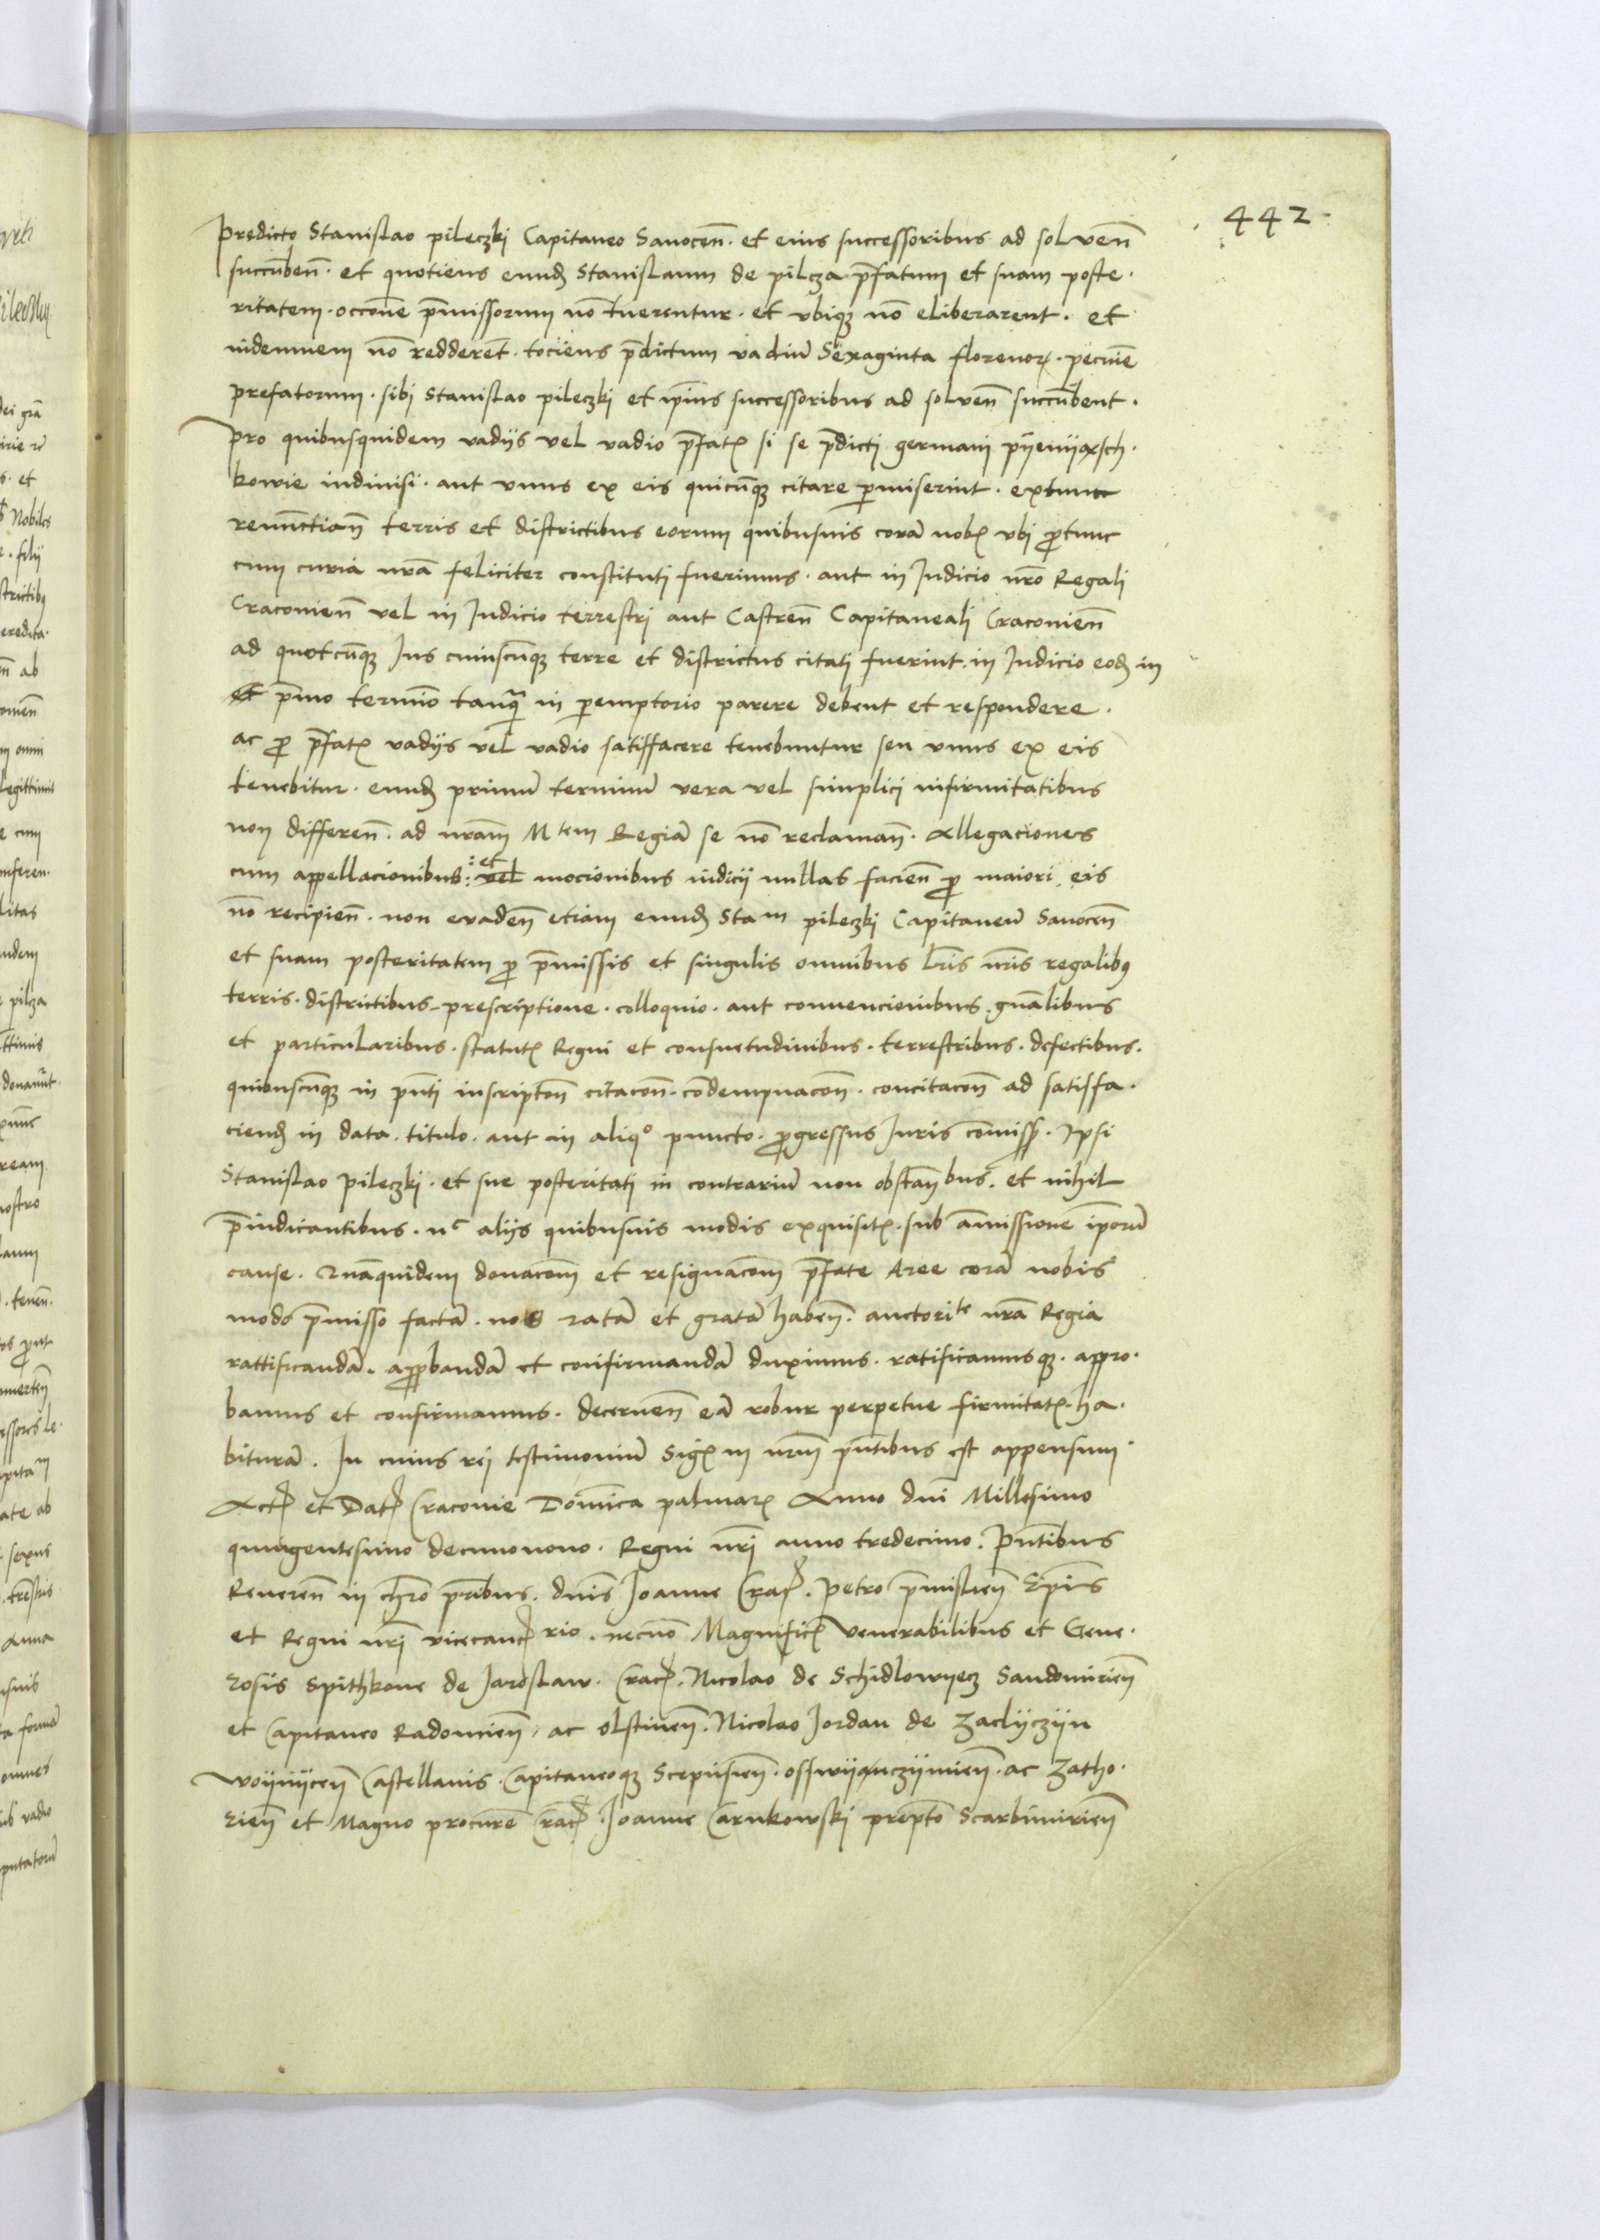 442
Predicto Stanislao pileczki Capitaneo Sanoceñ. et eius successoribus ad solveñ
succubeñ. et quotiens eund Stanislaum de pilcza pfatum et suam poste.
ritatem. occone pmissorum no tuerentur. et ubiq no eliberarent. et
indemnem no redderent. tociens pdictum vadiu Sexaginta florenor. pecunie
prefatorum. sibi Stanislao pileczki et ipius successoribus ad solveñ succubent.
Pro quibusquidem vadiis vel vadio pfat si se pdicti germani pyenyqsch.
kowie indivisi. aut unus ex eis quicuq citare pmiserint. extunc
terris et districtibus eorum quibusvis cora nob ubi ptunc
cum curia nra feliciter constituti fuerimus. aut in Judicio nro Regali
Cracovieñ vel in Judicio terrestri aut Castreñ Capitaneali Cracovieñ
ad quotcuq Jus cuiuscuq terre et districtus citati fuerint in Judicio eod in
et pmo termino tanq in peremptorio parere debent et respondere.
ac p pfat vadiis vel vadio satisffacere tenebuntur seu unus ex eis
tenebitur. eund primu terminu vera vel simplici infirmitatibus
non differeñ. ad nram Mtem Regia se no reclamañ. Allegaciones
cum appellacionibus: et vel mocionibus iudicii nullas facieñ p maiori eis
no recipieñ. non evadeñ etiam eund Stam pileczki Capitaneu Sanoceñ
et suam posteritatem p pmissis et singulis omnibus lris nris regalib9
terris. districtibus prescriptione. colloquio. aut convencionibus. gnalibus
et particularibus. statut Regni et consuetudinibus. terrestribus. defectibus.
quibuscuq in pnti inscripton citacon. condempnacon. concitacon ad satisfa.
ciend in data. titulo. aut in aliqo puncto. pgressus Juris comiss. Ipsi
Stanislao Pileczki. et sue posteritati in contrariu non obstanbus. et nihil
piudicantibus. nc aliis quibusvis modis exquisit. sub amissione iporu
cause. Quaquidem donacom et resignacom pfate Aree cora nobis
modo pmisso facta. nos rata et grata habeñ. auctorite nra Regia
rattificanda. approbanda et confirmanda duximus. ratificamusq. appro.
bamus et confirmamus. decerneñ ea robur perpetue firmitat. ha.
bitura. In cuius rei testimoniu Sig m nrm pntibus est appensum.
Act et Dat Cracovie Dominica palmar Anno dni Millesimo
quingentesimo decimonono. Regni nri anno tredecimo. Pntibus
Revereñ in chro pribus. dnis Joanne Crac. Petro pmislieñ Epis
et Regni nri vicecanc rio. necno Magnific venerabilibus et Gene.
rosis Spithkone de Jaroslaw. Crac. Nicolao de Schidlowyecz Sandomirieñ
et Capitaneo Radomieñ. ac olstineñ. Nicolao Jordan de Zaclyczyn
woyniiceñ Castellanis. Capitaneoq Scepusieñ. osswyanczymieñ. ac Zatho.
rieñ et Magno procure Crac. Joanne Carnkowski prepto Scarbimirieñ